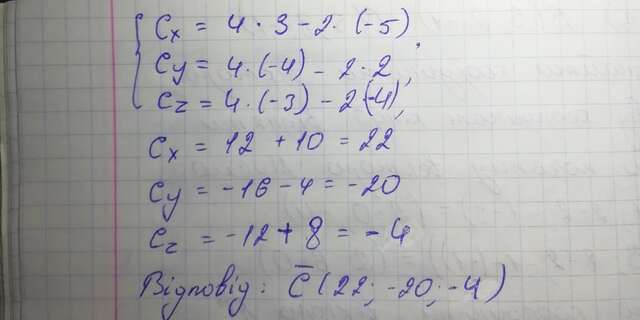 Cx = 4 · 3 - 2 · (-5)
Cy = 4 · (-4) - 2 · 2 ;
Cz = 4 · (-3) - 2(-4),
Cx = 12 + 10 = 22
Cy = -16 - 4 = -20
Cz = -12 + 8 = -4
Відповід: C̄ (22; -20; -4)